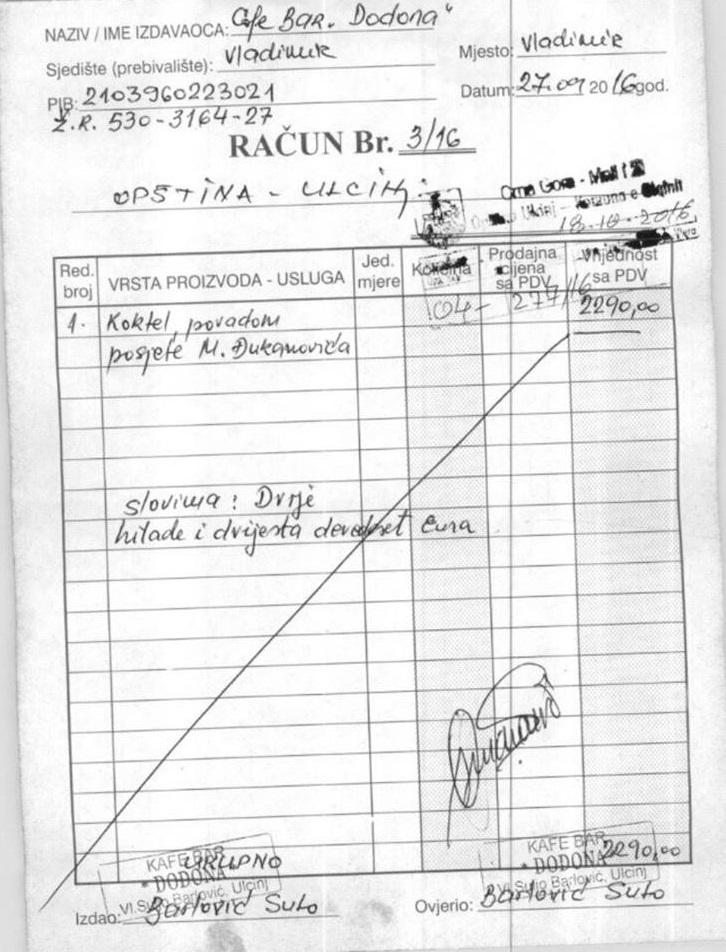 NAZIV / IME IZDAVAOCA: Cafe BAR. Dodona"
Sjedište (prebivalište): Vladimir
Mjesto: Vladimir
PIB: 2103960223021
Datum: 27.09 2016 god.
Ž.R. 530-3164-27
RAČUN Br. 3/16
OPŠTINA - ULCINJ
Crna Gora - Mali i Zi
Ulcinj - Komuna e Ulqinit
18-10-2016
Red. broj
VRSTA PROIZVODA - USLUGA
Jed. mjere
Količina
Prodajna cijena sa PDV
Vrijednost sa PDV
04- 277/16
1. Koktel, povadom
2290,00
posjete M. Đukanovića
slovima: Dvije
hilade i dvijesta devedeset eura
KAFE BAR
UKUPNO
"DODONA"
Vl.Suljo Barlović, Ulcinj
KAFE BAR
2290,00
"DODONA"
Vl.Suljo Barlović, Ulcinj
Izdao: Barlović Suto
Ovjerio: Barlović Suto